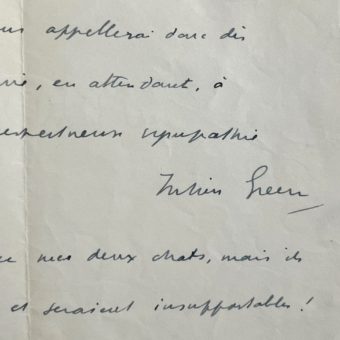 us appellerai donc dès
vie, en attendant, à
espectueuse sympathie
Julien Green
ue mes deux chats, mais ils
et seraient insupportables !